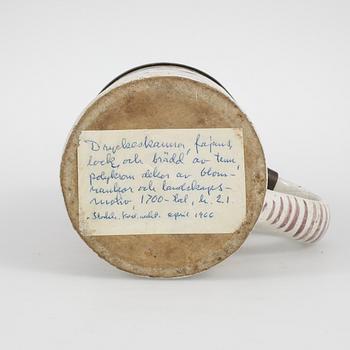 Dryckeskanna, fajans,
lock och brädd av tenn,
polykrom dekor av blom-
rankor och landskaps-
motiv, 1700-tal, h. 21.
april 1966